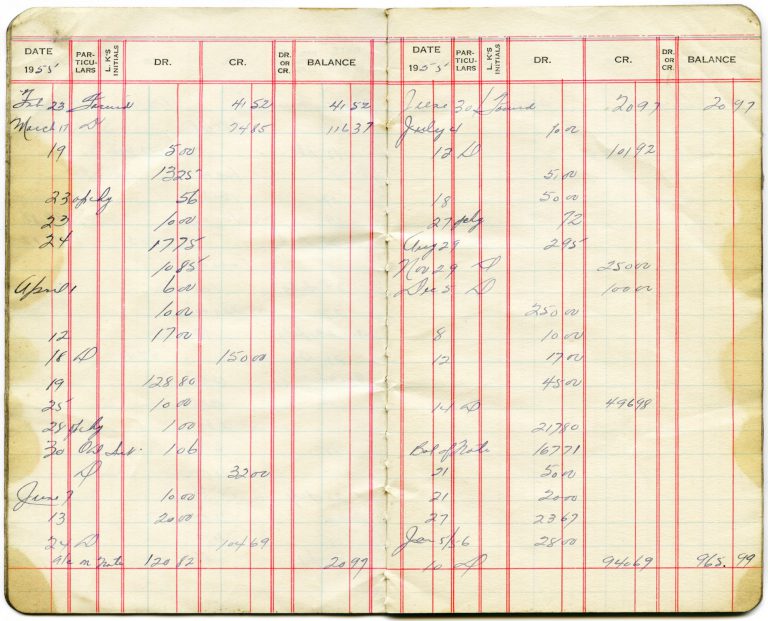 DATE 1955 PAR-TICU-LARS L. K'S INITIALS DR. CR. DR. OR CR. BALANCE
Feb 23 Forward 41 52 41 52
March 17 D 74 85 116 37
19 5 00
13 25
23 op chg 56
23 10 00
24 17 75
10 85
April 1 6 00
10 00
12 17 00
18 D 150 00
19 128 80
25 10 00
28 op chg 1 00
30 Od Int. 1 06
D 32 00
June 7 10 00
13 20 00
24 D 104 69
a/c on Note 120 82 20 97
DATE 1955 PAR-TICU-LARS L. K'S INITIALS DR. CR. DR. OR CR. BALANCE
June 30 Forward 20 97 20 97
July 4 10 00
12 D 101 92
5 00
18 50 00
27 op chg 72
Aug 29 2 95
Nov 29 D 250 00
Dec 5 D 100 00
250 00
8 10 00
12 17 00
45 00
14 D 496 98
217 80
Bal of Note 167 71
21 50 00
21 20 00
27 23 67
Jan 5/56 28 00
10 D 940 69 965.99